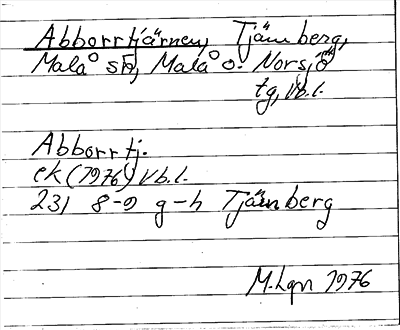 Abborrtjärnen, Tjämberg,
Malå sn, Malå o. Norsjö
tg, Vb.l.
Abborrtj.
ek (1976) Vb.l.
23 J 8-9 g-h Tjämberg
M.Lgn 1976